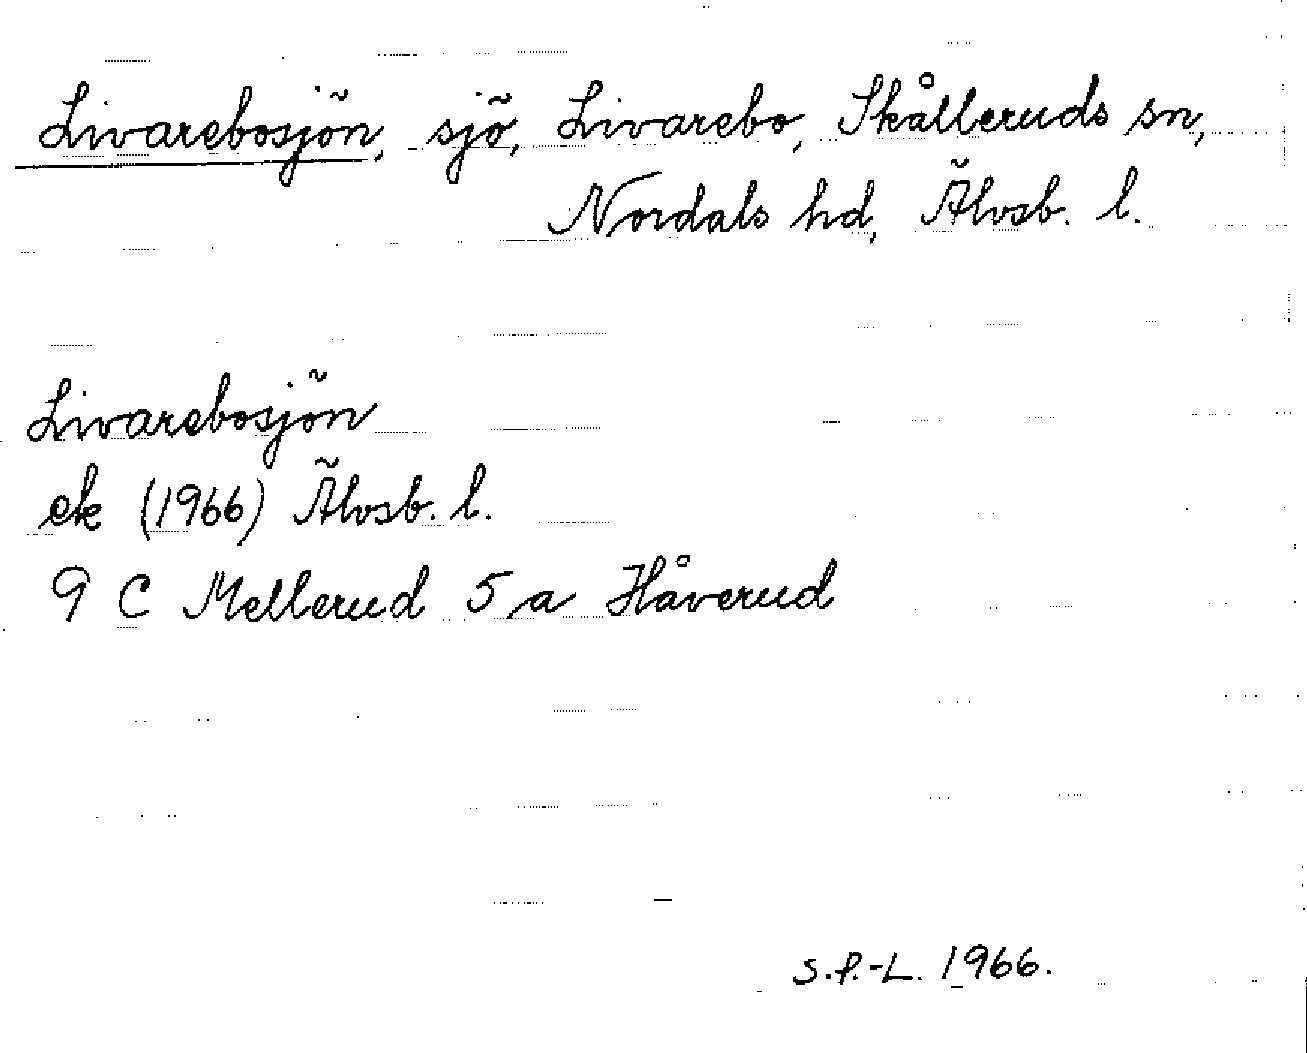 Livarebosjön, sjö, Livarebo, Skålleruds sn,
Nordals hd, Älvsb. l.
Livarebosjön
ek (1966) Älvsb. l.
9 C Mellerud 5 a Håverud
S.P.-L. 1966.